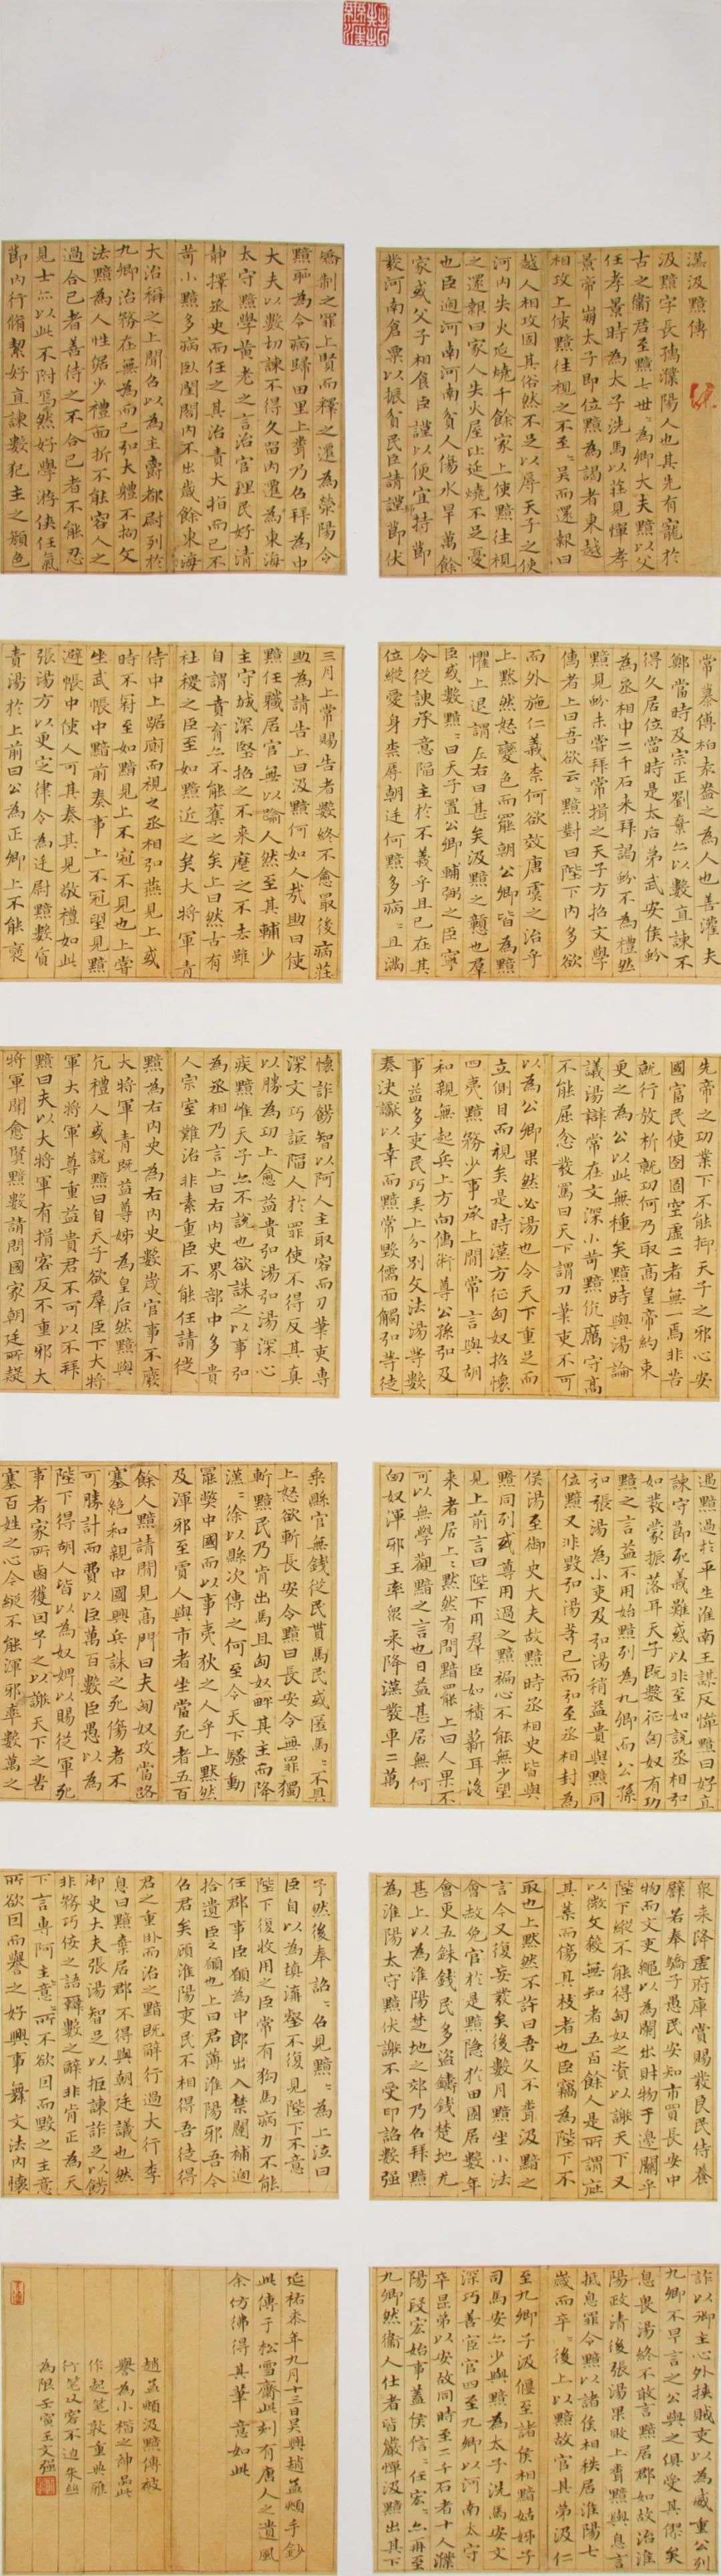 漢汲黯傳
汲黯字長孺濮陽人也其先有寵於
古之衛君至黯七世〻為卿大夫黯以父
任孝景時為太子洗馬以莊見憚孝
景帝崩太子即位黯為謁者東越
相攻上使黯往視之不至〻吳而還報曰
越人相攻固其俗然不足以辱天子之使
河內失火延燒千餘家上使黯往視
之還報曰家人失火屋比延燒不足憂
也臣過河南河南貧人傷水旱萬餘
家或父子相食臣謹以便宜持節
發河南倉粟以振貧民臣請歸節伏
矯制之罪上賢而釋之遷為滎陽令
黯恥為令病歸田里上聞乃召拜為中
大夫以數切諫不得久留內遷為東海
太守黯學黃老之言治官理民好清
靜擇丞史而任之其治責大指而已不
苛小黯多病臥閨閤內不出歲餘東海
大治稱之上聞召以為主爵都尉列於
九卿治務在無為而已弘大體不拘文
法黯為人性倨少禮面折不能容人之
過合己者善待之不合己者不能忍
見士亦以此不附焉然好學游俠任氣
節內行脩絜好直諫數犯主之顏色
常慕傅柏袁盎之為人也善灌夫
鄭當時及宗正劉棄亦以數直諫不
得久居位當時是太后弟武安侯蚡
為丞相中二千石來拜謁蚡不為禮然
黯見蚡未嘗拜常揖之天子方招文學
儒者上曰吾欲云〻黯對曰陛下內多欲
而外施仁義柰何欲效唐虞之治乎
上默然怒變色而罷朝公卿皆為黯
懼上退謂左右曰甚矣汲黯之戇也羣
臣或數黯〻曰天子置公卿輔弼之臣寧
令從諛承意陷主於不義乎且已在其
位縱愛身柰辱朝廷何黯多病〻且滿
三月上常賜告者數終不愈最後病莊
助為請告上曰汲黯何如人哉助曰使
黯任職居官無以踰人然至其輔少
主守城深堅招之不來麾之不去雖
自謂賁育亦不能奪之矣上曰然古有
社稷之臣至如黯近之矣大將軍青
侍中上踞廁而視之丞相弘燕見上或
時不冠至如黯見上不冠不見也上嘗
坐武帳中黯前奏事上不冠望見黯
避帳中使人可其奏其見敬禮如此
張湯方以更定律令為廷尉黯數質
責湯於上前曰公為正卿上不能襃
先帝之功業下不能抑天下之邪心安
國富民使囹圄空虛二者無一焉非苦
就行放析就功何乃取高皇帝約束
更之為公以此無種矣黯時與湯論
議湯辯常在文深小苛黯伉厲守高
不能屈忿發罵曰天下謂刀筆吏不可
以為公卿果然必湯也令天下重足而
立側目而視矣是時漢方征匈奴招懷
四夷黯務少事承上間常言與胡
和親無起兵上方向儒術尊公孫弘及
事益多吏民巧弄上分別文法湯等數
奏決讞以幸而黯常毀儒面觸弘等徒
懷詐飾智以阿人主取容而刀筆吏專
深文巧詆陷人於罪使不得反其真
以勝為功上愈益貴弘湯弘湯深心
疾黯惟天子亦不說也欲誅之以事弘
為丞相乃言上曰右內史界部中多貴
人宗室難治非素重臣不能任請徙
黯為右內史為右內史數歲官事不廢
大將軍青既益尊姊為皇后然黯與
亢禮人或說黯曰自天子欲羣臣下大將
軍大將軍尊重益貴君不可以不拜
黯曰夫以大將軍有揖客反不重邪大
將軍聞愈賢黯數請問國家朝廷所疑
遇黯過於平生淮南王謀反憚黯曰好直
諫守節死義難惑以非至如說丞相弘
如發蒙振落耳天子既數征匈奴有功
黯之言益不用始黯列為九卿而公孫
弘張湯為小吏及弘湯稍益貴與黯同
位黯又非毀弘湯等已而弘至丞相封為
侯湯至御史大夫故黯時丞相史皆與
黯同列或尊用過之黯褊心不能無少望
見上前言曰陛下用羣臣如積薪耳後
來者居上〻默然有間黯罷上曰人果不
可以無學觀黯之言也日益甚居無何
匈奴渾邪王率眾來降漢發車二萬
乘縣官無錢從民貰馬民或匿馬〻不具
上怒欲斬長安令黯曰長安令無罪獨
斬黯民乃肯出馬且匈奴畔其主而降
漢〻徐以縣次傳之何至令天下騷動
罷弊中國而以事夷狄之人乎上默然
及渾邪至賈人與市者坐當死者五百
餘人黯請間見高門曰夫匈奴攻當路
塞絕和親中國興兵誅之死傷者不
可勝計而費以巨萬百數臣愚以為
陛下得胡人皆以為奴婢以賜從軍死
事者家所鹵獲因予之以謝天下之苦
塞百姓之心今縱不能渾邪率數萬之
眾來降虛府庫賞賜發良民侍養
譬若奉驕子愚民安知市買長安中
物而文吏繩以為闌出財物于邊關乎
陛下縱不能得匈奴之資以謝天下又
以微文殺無知者五百餘人是所謂庇
其葉而傷其枝者也臣竊為陛下不
取也上默然不許曰吾久不聞汲黯之
言今又復妄發矣後數月黯坐小法
會赦免官於是黯隱於田園居數年
會更五銖錢民多盜鑄錢楚地尤
甚上以為淮陽楚地之郊乃召拜黯
為淮陽太守黯伏謝不受印詔數強
予然後奉詔〻召見黯〻為上泣曰
臣自以為填溝壑不復見陛下不意
陛下復收用之臣常有狗馬病力不能
任郡事臣願為中郎出入禁闥補過
拾遺臣之願也上曰君薄淮陽邪吾今
召君矣顧淮陽吏民不相得吾徒得
君之重臥而治之黯既辭行過大行李
息曰黯棄居郡不得與朝廷議也然
御史大夫張湯智足以拒諫詐足以飾
非務巧佞之語辯數之辭非肯正為天
下言專阿主意〻所不欲因而毀之主意
所欲因而譽之好興事舞文法內懷
詐以御主心外挾賊吏以為威重公列
九卿不早言之公與之俱受其僇矣
息畏湯終不敢言黯居郡如故治淮
陽政清後張湯果敗上聞黯與息言
抵息罪令黯以諸侯相秩居淮陽七
歲而卒〻後上以黯故官其弟汲仁
至九卿子汲偃至諸侯相黯姑姊子
司馬安亦少與黯為太子洗馬安文
深巧善宦官四至九卿以河南太守
卒昆弟以安故同時至二千石者十人濮
陽段宏始事蓋侯信〻任宏〻亦再至
九卿然衛人仕者皆嚴憚汲黯出其下
延祐柒年九月十三日吳興趙孟頫手鈔
此傳于松雪齋此刻有唐人之遺風
余仿佛得其筆意如此
趙孟頫汲黯傳被
譽為小楷之神品此
作起筆敦重典雅
行筆以
為限壬寅王文强